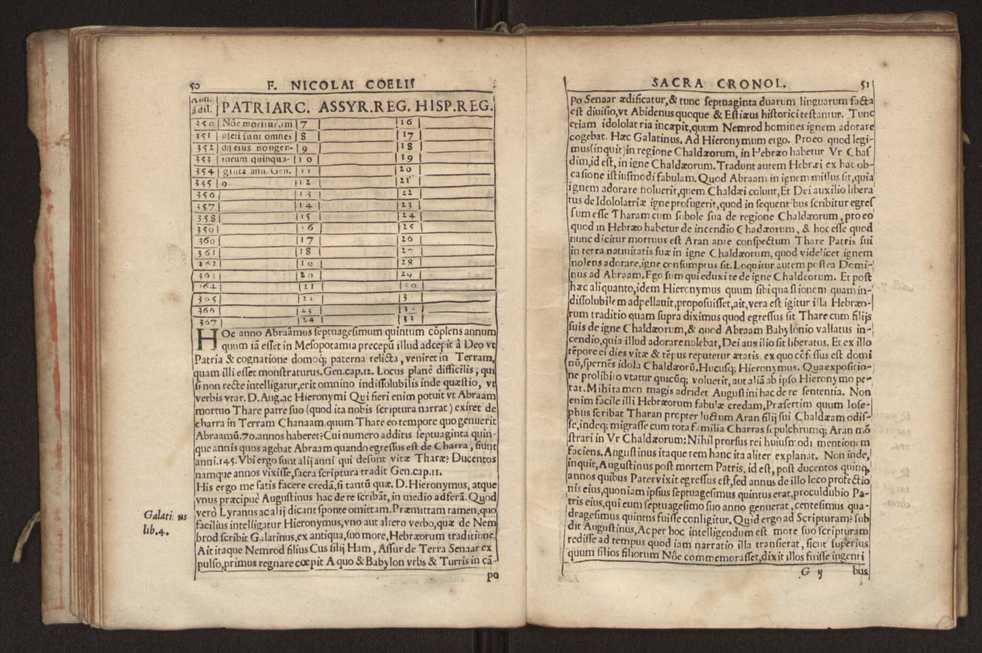 50 F. NICOLAI COELII
PATRIARC. ASSYR.REG. HISP.REG.
350 Nõe moritur,im 7 16
351 pleti sunt omnes 8 17
352 dij eius nongen- 9 18
353 torum quinqua- 10 19
354 ginta ann. Gen. 11 20
355 9. 12 21
356 13 22
357 14 23
358 15 24
359 16 25
360 17 26
361 18 27
362 19 28
363 20 29
364 21 30
365 22 31
366 23
367 24 32
HOc anno Abraâmus septuagesimum quintum cõplens annum
quum iã esset in Mesopotamia precepũ illud adcepit à Deo vt
Patria & cognatione domoq; paterna relicta, veniret in Terram,
quam illi esset monstraturus. Gen.cap.12. Locus planè difficilis, qui
si non recte intelligatur, erit omnino indissolubilis inde quæstio, vt
verbis vtar. D. Aug. ac Hieronymi Qui fieri enim potuit vt Abraam
mortuo Thare patre suo (quod ita nobis scriptura narrat) exiret de
charra in Terram Chanaam. quum Thare eo tempore quo genuerit
Abraamũ. 70. annos haberet: Cui numero additis septuaginta quin-
que annis quos agebat Abraam quando egressus est de Charra, fiunt
anni. 145. Vbi ergo sunt alij anni qui desunt vitæ Tharæ: Ducentos
namque annos vixisse, sacra scriptura tradit Gen.cap.11.
His ergo me satis facere credã, si tantũ quæ. D. Hieronymus, atque
vnus præcipuè Augustinus hac de re scribãt, in medio adferã. Quod
verò Lyranus ac alij dicant sponte omittam. Præmuttam tamen, quo
facilius intelligatur Hieronymus, vno aut altero verbo, quæ de Nem
brod scribit Galatinus, ex antiqua, suo more, Hebræorum traditione.
Ait itaque Nemrod filius Cus filij Ham, Assur de Terra Senaar ex
pulso, primus regnare cœpit A quo & Babylon vrbs & Turris in cã-
po
Galatinus
lib.4.
SACRA CRONOL. 51
po Senaar ædificatur, & tunc septuaginta duarum linguarum facta
est diuisio, vt Abidenus quoque & Estiæus historici testantur. Tunc
etiam idololatria incæpit, quum Nemrod homines ignem adorare
cogebat. Hæc Galatinus. Ad Hieronymum ergo. Pro eo quod legi-
mus (inquit) in regione Chaldæorum, in Hebræo habetur Vr Chas
dim, id est, in igne Chaldæorum. Tradunt autem Hebræi ex hac ob-
casione istiusmodi fabulam. Quod Abraam in ignem missus sit, quia
ignem adorare noluerit, quem Chaldæi colunt, Et Dei auxilio libera
tus de Idololatriæ igne profugerit, quod in sequentibus scribitur egres
sum esse Tharam cum sobole sua de regione Chaldæorum, pro eo
quod in Hebræo habetur de incendio Chadæorum, & hoc esse quod
nunc dicitur mortuus est Aran ante conspectum Thare Patris sui
in terra natiuitatis suæ in igne Chaldæorum, quod videlicet ignem
nolens adorare, igne consumptus sit. Loquitur autem postea Domi-
nus ad Abraam, Ego sum qui eduxi te de igne Chaldæorum. Et post
hæc aliquanto, idem Hieronymus quum sibi quæstionem quam in-
dissolubilem adpellauit, proposuisset, ait, vera est igitur illa Hebræo-
rum traditio quam supra diximus quod egressus sit Thare cum filijs
suis de igne Chaldæorum, & quod Abraam Babylonio vallatus in-
cendio, quia illud adorare nolebat, Dei auxilio sit liberatus. Et ex illo
tẽpore ei dies vitæ & tẽpus reputetur ætatis. ex quo cõfessus est domi
nũ, spernẽs idola Chaldæorũ. Hucusq; Hieronymus. Qua expositio-
ne prolibito vtatur quicũq; voluerit, aut aliã ab ipso Hieronymo pe-
tat. Mihi tamen magis adridet Augustini hac de re sententia. Non
enim facile illi Hebræorum fabulæ credam, Præsertim quum Iose-
phus scribat Tharan propter luctum Aran filij sui Chaldæam odis-
se, indeq; migrasse cum tota familia Charras sepulchrumq; Aran mõ
strari in Vr Chaldæorum: Nihil prorsus rei huiusmodi mentionem
faciens. Augustinus itaque rem hanc ita aliter explanat. Non inde,
inquit, Augustinus post mortem Patris, id est, post ducentos quinq;
annos quibus Pater vixit egressus est, sed annus de illo loco profectio
nis eius, quoniam ipsius septuagesimus quintus erat, procul dubio Pa-
tris eius, qui eum septuagesimo suo anno genuerat, centesimus qua-
dragesimus quintus fuisse colligitur. Quid ergo ad Scripturam? sub
dit Augustinus, Ac per hoc intelligendum est more suo scripturam
redisse ad tempus quod iam narratio illa transierat, sicut superius
quum filios filiorum Nõe commemorasset, dixit illos fuisse in genti
G ij bus